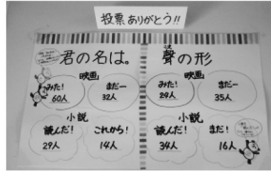 投票ありがとう!!
君の名は。
映画
みた!
60人
まだー
32人
小説
読んだ!
29人
これから!
14人
聲の形
映画
みた!
29人
まだー
35人
小説
読んだ!
34人
まだ!
16人